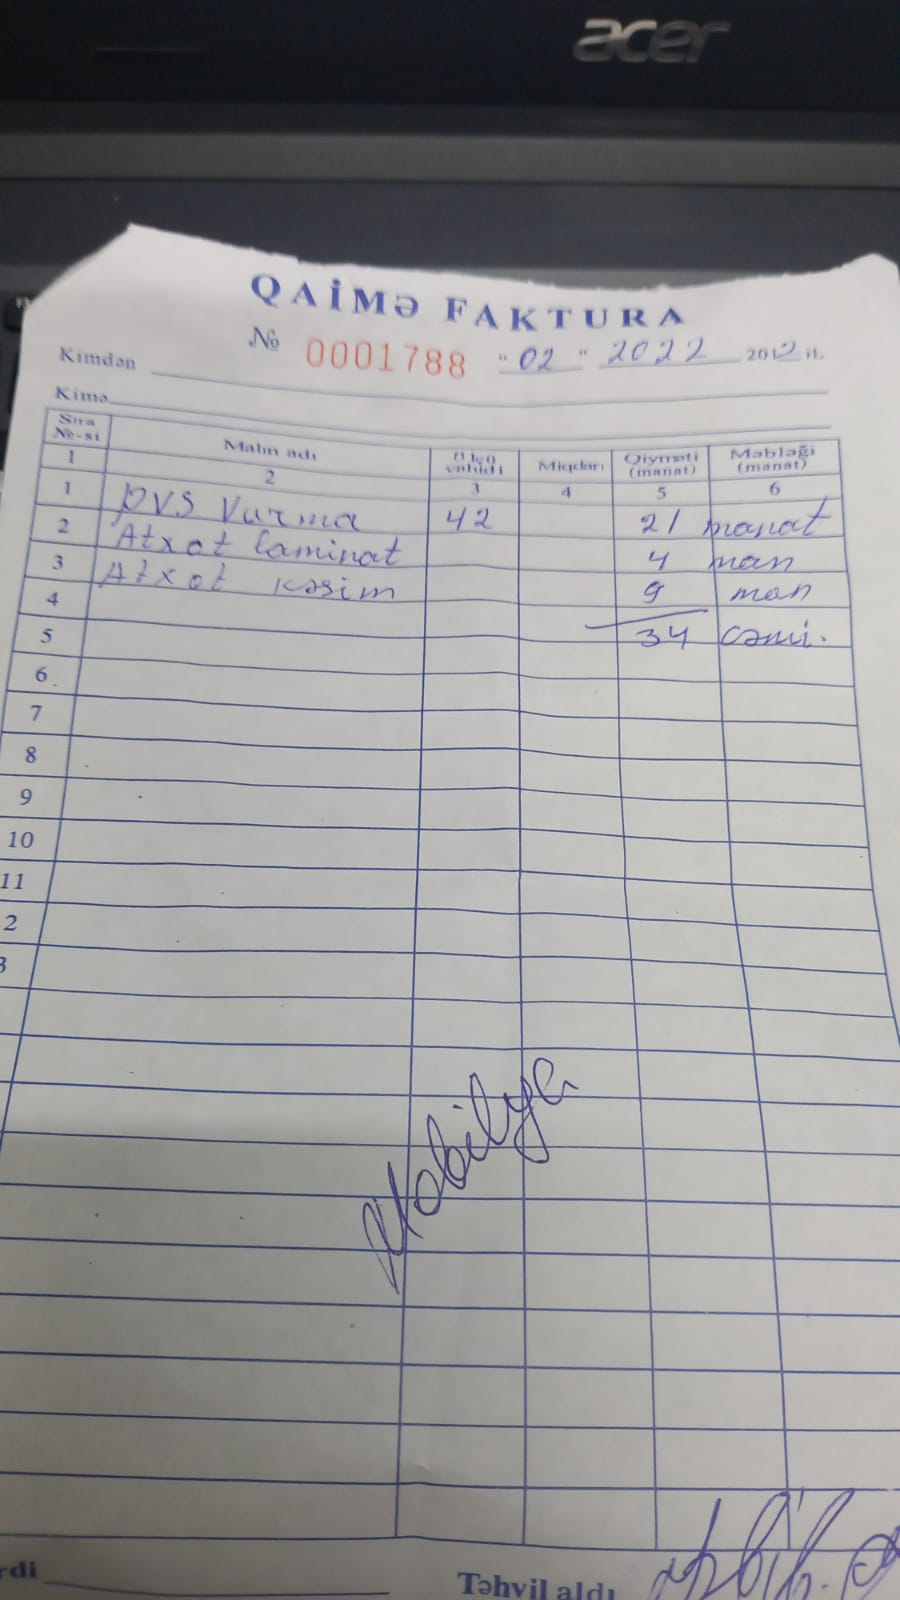 acer
QAİMƏ FAKTURA
№ 0001788 "02" 2022 201 il.
Kimdən
Kimə
Sıra №-si Malın adı Ölçü vahidi Miqdarı Qiyməti (manat) Məbləği (manat)
1 2 3 4 5 6
1 PVS Vurma 42 21 manat
2 Atxot laminat 4 man
3 Atxot kəsim 9 man
4 34 cəmi.
5
6
7
8
9
10
11
2
3
Mobilya
rdi Təhvil aldı